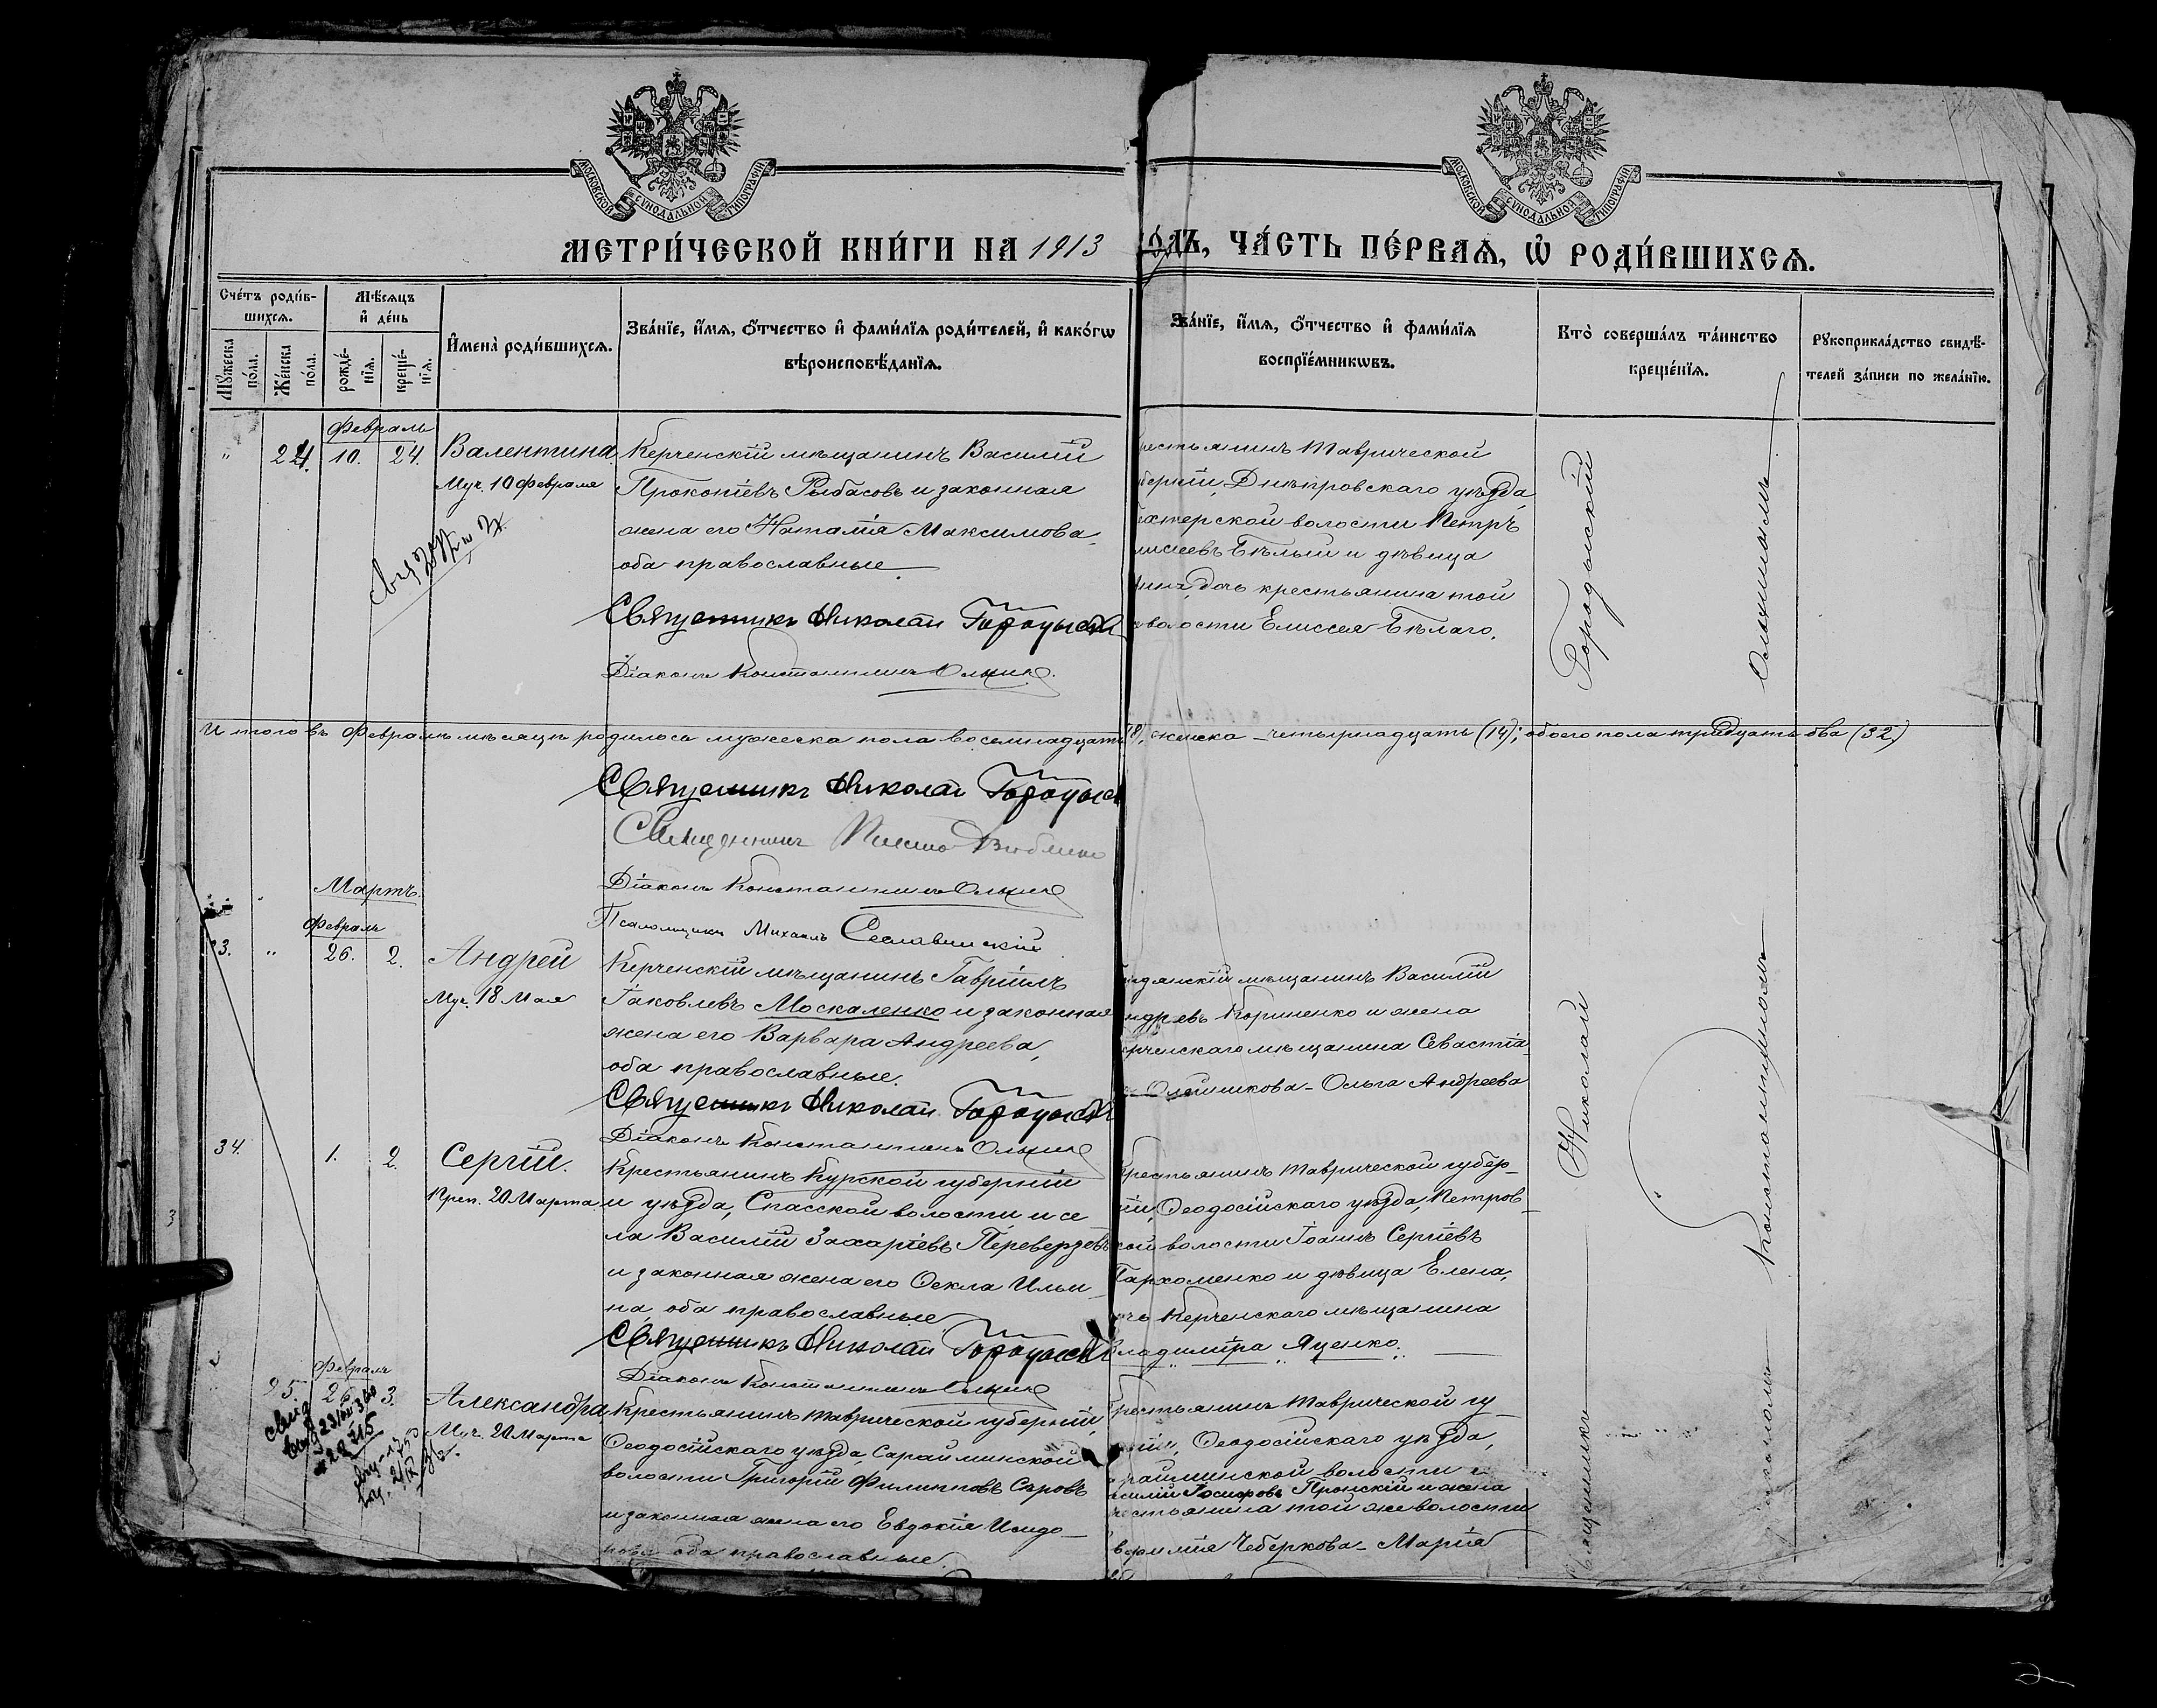 МОСКОВСКОЙ СѴНОДАЛЬНОЙ ТИПОГРАФІИ
МОСКОВСКОЙ СѴНОДАЛЬНОЙ ТИПОГРАФІИ
МЕТРИ́ЧЕСКОЙ КНИ́ГИ НА 1913 го́дъ, ЧА́СТЬ ПЕ́РВАѦ, Ѡ҆ РОДИ́ВШИХСѦ.
Сче́тъ роди́в-
шихсѧ.
Мꙋ́жеска по́ла.
Же́нска по́ла.
Мѣ́сѧцъ и҆ де́нь
рожде́-
нїѧ.
креще́-
нїѧ.
И҆мена̀ роди́вшихсѧ.
Зва́нїе, и҆́мѧ, ѻ҆́тчество и҆ фами́лїѧ роди́телей, и҆ како́гѡ
вѣроисповѣ́данїѧ.
Зва́нїе, и҆́мѧ, ѻ҆́тчество и҆ фами́лїѧ
воспрїе́мникѡвъ.
Кто̀ соверша́лъ та́инство
креще́нїѧ.
Рꙋкоприкла́дство свидѣ́-
телей за́писи по жела́нїю.
Февраль
" 24. 10. 24. Валентина
Муч. 10 февраля
Керченскій мѣщанинъ Василій
Прокопіевъ Рыбасовъ и законная
жена его Наталія Максимова,
оба православные.
Священникъ Николай Городыскій
Діаконъ Константинъ
рестьянинъ Таврической
берніи, Днѣпровскаго уѣзда,
волости Петръ
лисеевъ Бѣлый и дѣвица
дочь крестьянина той
волости Елиссея Бѣлаго.
Итого въ Февралѣ мѣсяцѣ родилось мужеска пола восемнадцать (18), женска – четырнадцать (14); обоего пола тридцать два (32)
Священникъ Николай Городыскій
Священникъ
Діаконъ Константинъ
Псаломщикъ Михаилъ Сеславинскій
Мартъ.
Февраль
33. " 26. 2. Андрей
Муч. 18 Мая
Керченскій мѣщанинъ Гавріилъ
Іаковлевъ Москаленко и законная
жена его Варвара Андреева,
оба православные.
Священникъ Николай Городыскій
Діаконъ Константинъ
дянскій мѣщанинъ Василій
ндреевъ Кориненко и жена
рченскаго мѣщанина Севастіа-
Олейникова – Ольга Андреева
34. 1. 2. Сергій.
Преп. 20 Марта
Крестьянинъ Курской губерніи
и уѣзда, Спасской волости и се
ла Василій Захаріевъ Переверзевъ
и законная жена его Ѳекла Ильи
на, оба православные
Священникъ Николай Городыскій
Діаконъ Константинъ
Крестьянинъ Таврической губер-
ніи, Ѳеодосійскаго уѣзда, Петров-
ской волости Іоаннъ Сергіевъ
Пархоменко и дѣвица Елена,
дочь Керченскаго мѣщанина
Владиміра Яценко.
Февраль
25. 26. 3. Александра
Муч. 20 Марта
Крестьянинъ Таврической губерніи,
Ѳеодосійскаго уѣзда, Сарайминской
волости Григорій Филипповъ Серовъ
и законная жена его Евдокія Исидо-
рова оба православные.
рестьянинъ Таврической гу-
берніи, Ѳеодосійскаго уѣзда,
арайминской волости
асилій Іосифовъ Пронскій и жена
рестьянина той же волости
Чеберкова – Марія
Священникъ Николай Городыскій
Константиномъ